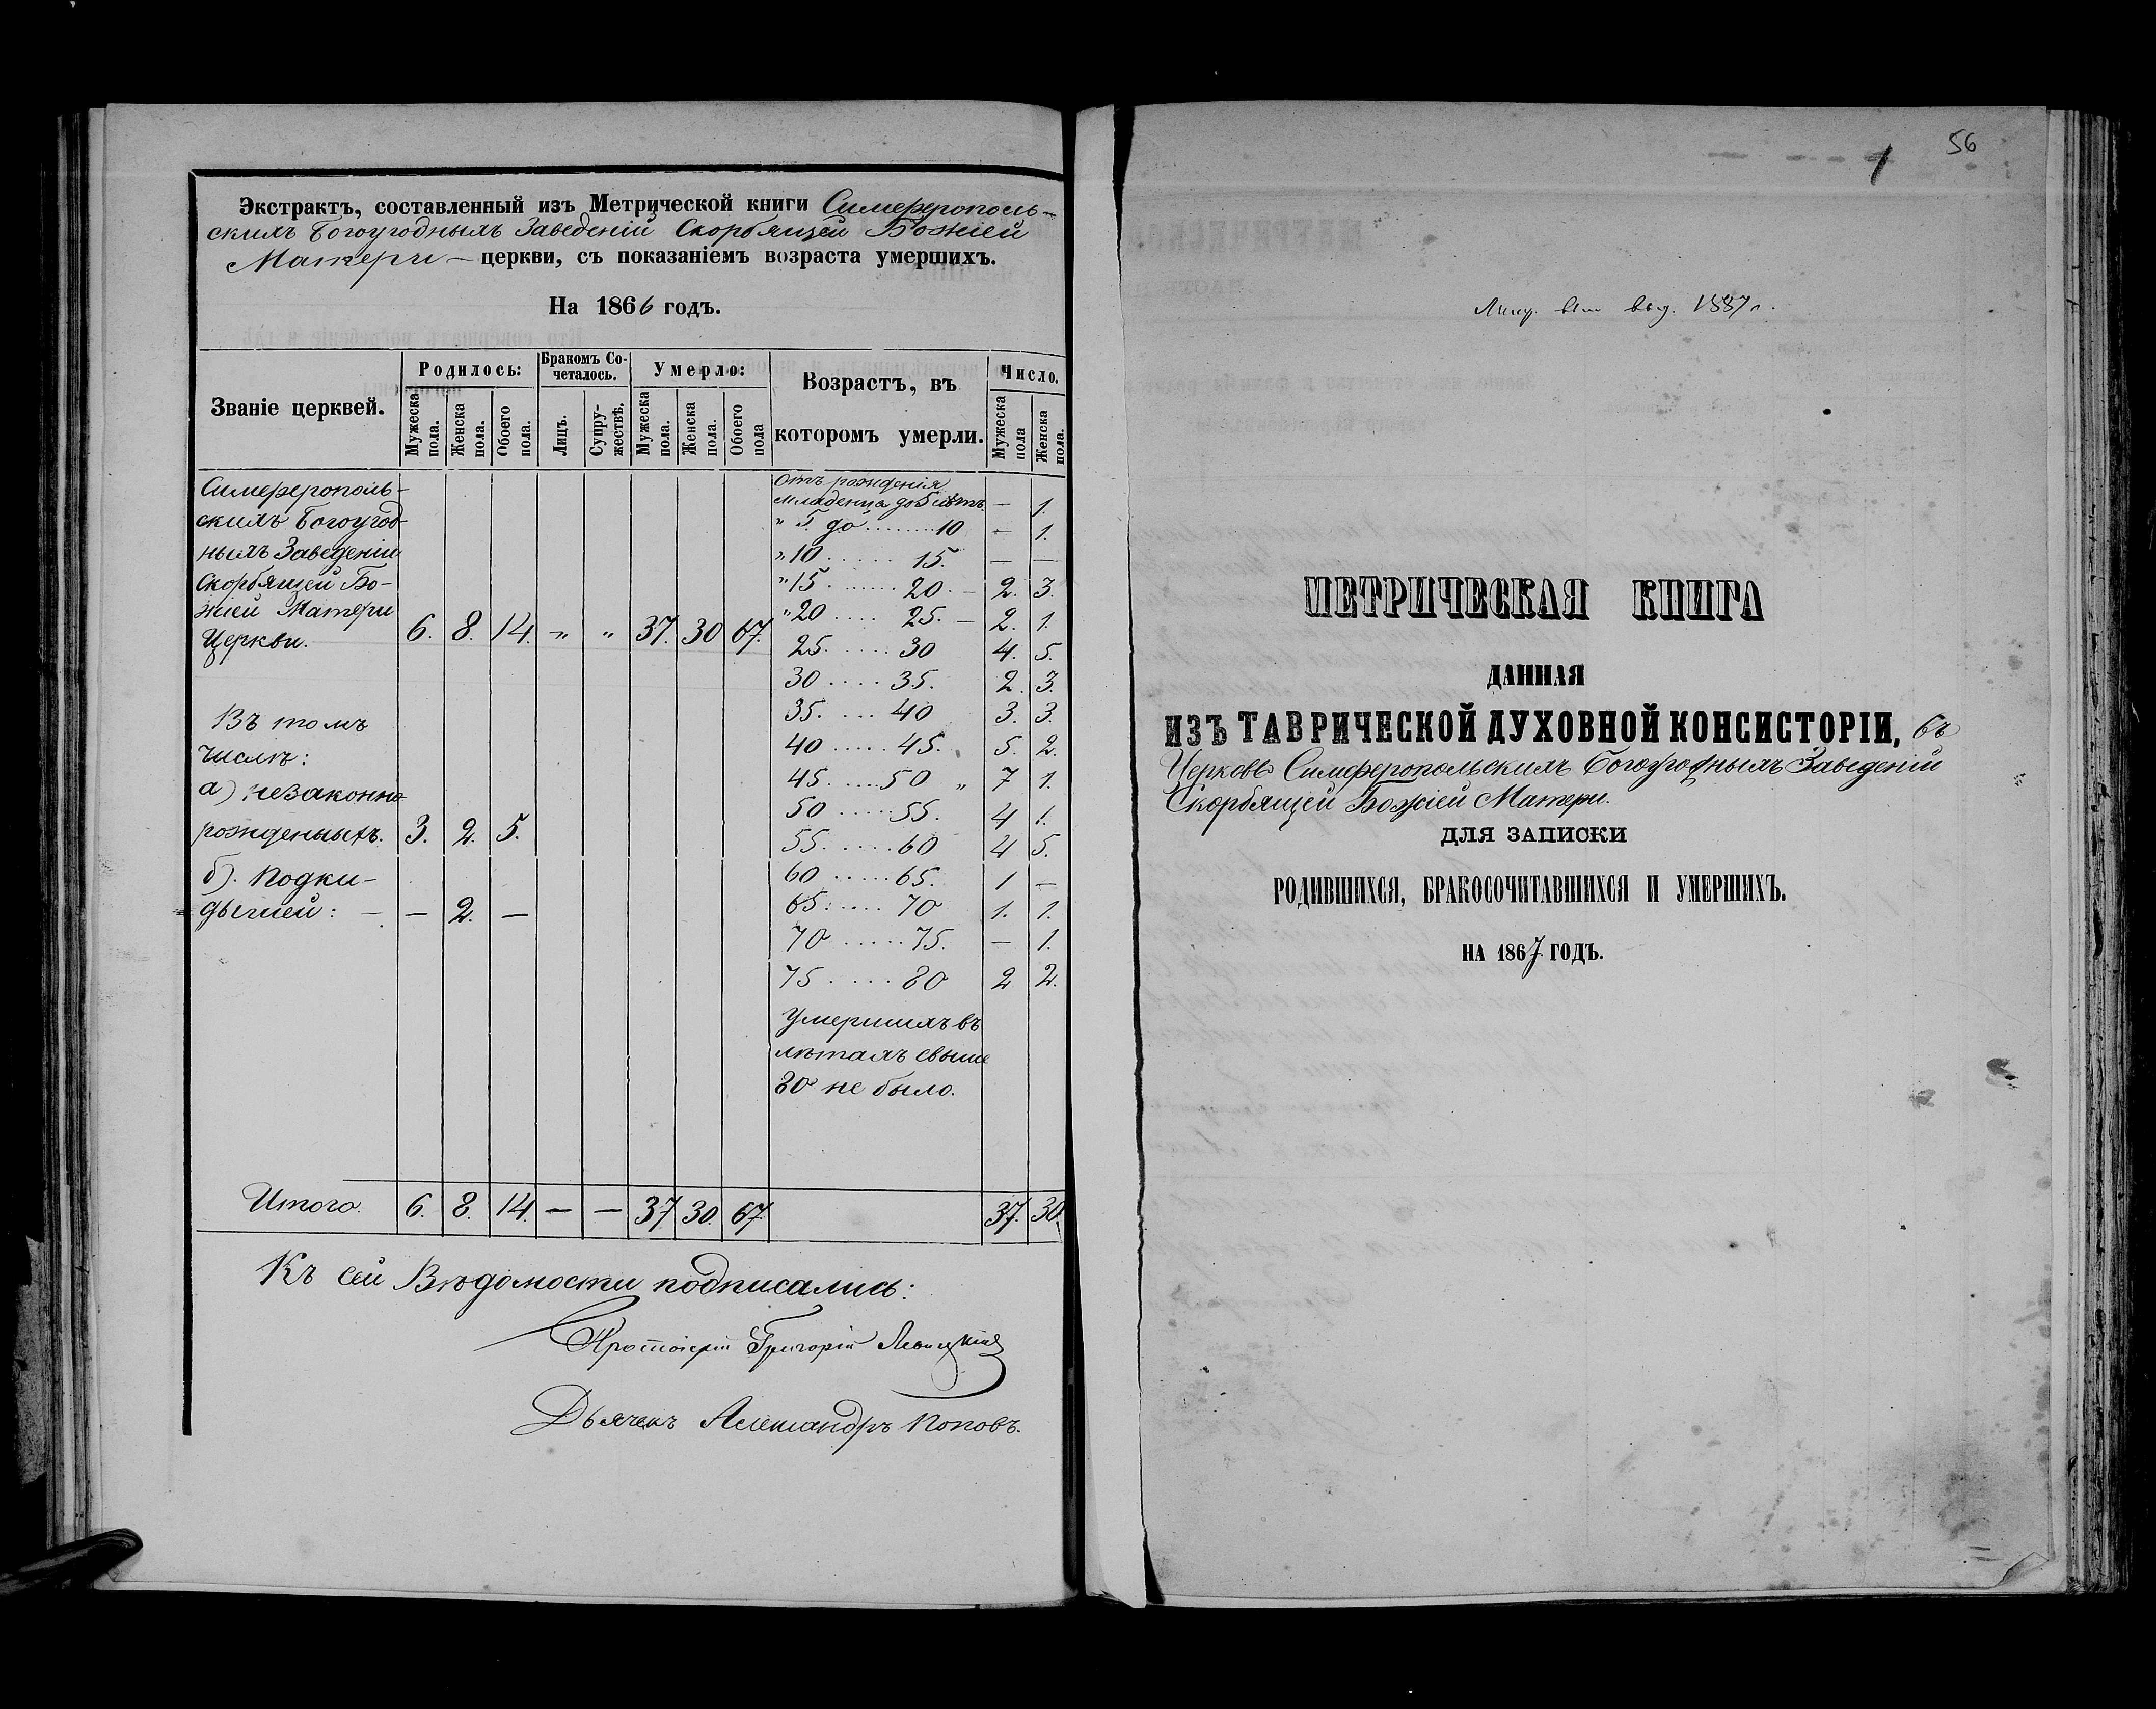 Экстрактъ, составленный изъ Метрической книги Симферополь-
скихъ Богоугодныхъ Заведеній Скорбящей Божіей
Матери – церкви, съ показаніемъ возраста умершихъ.
На 1866 годъ.
Званіе церквей.
Родилось:
Мужеска пола.
Женска пола.
Обоего пола.
Бракомъ Со-
четалось.
Лицъ.
Супру-
жествъ.
Умерло:
Мужеска пола.
Женска пола.
Обоего пола
Возрастъ, въ
которомъ умерли.
Число.
Мужеска пола
Женска пола.
Симферополь-
скихъ Богоугод-
ныхъ Заведеній
Скорбящей Бо-
жіей Матери
Церкви. 6. 8. 14. „ „ 37. 30 67.
Въ томъ
числѣ:
а) незаконно
рожденныхъ. 3. 2. 5.
б). Подки-
дышей: – – 2. –
Отъ рожденія
Младенца до 5 лѣтъ – 1.
„ 5 до ........ 10 – 1.
„ 10 ...... 15. – –
„ 15 ....... 20. – 2. 3.
„ 20 .... 25. – 2. 1.
25. ..... 30 4. 5.
30 .... 35. 2. 3.
35. .... 40 3. 3.
40 ..... 45. 5. 2.
45. .... 50 „ 7 1.
50 ..... 55. 4 1.
55. ..... 60 4 5.
60 ..... 65. 1 –
65. .... 70 1. 1.
70 ..... 75. – 1.
75 ..... 80 2 2.
Умершихъ въ
лѣтахъ свыше
80 не было.
Итого. 6. 8. 14. – – 37. 30. 67. 37. 30.
Къ сей Вѣдомости подписались:
Протоіерей Григорій
Дьячекъ Александръ Поповъ.
1
56
1887 г.
МЕТРИЧЕСКАЯ КНИГА
ДАННАЯ
ИЗЪ ТАВРИЧЕСКОЙ ДУХОВНОЙ КОНСИСТОРІИ, въ
Церковь Симферопольскихъ Богоугодныхъ Заведеній
Скорбящей Божіей Матери.
ДЛЯ ЗАПИСКИ
РОДИВШИХСЯ, БРАКОСОЧИТАВШИХСЯ И УМЕРШИХЪ.
НА 1867 ГОДЪ.